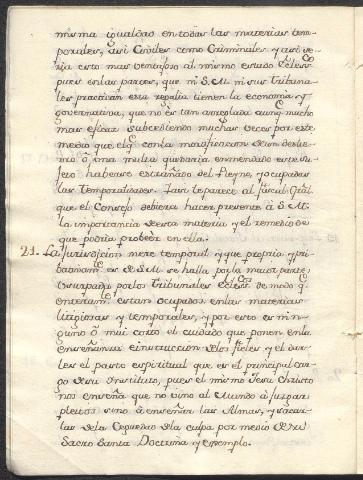 misma igualdad en todas las materias tem-
porales, assi Civiles como Criminales, y assi se-
ria esto mas ventajoso al mismo estado Ecless.co
pues en las partes, que ni S.M. ni sus Tribuna-
les practican esta regalia tienen la economia y
governativa, que no es tan arreglada aunq. mucho
mas eficaz subcediendo muchas veces por este
medio que el q. con la mortificacion de un destie-
rro ô una multa quedaria enmendado este su-
jeto haberse estrañado del Reyno, y ocupadas
las temporalidades. Assi le parece al fiscal Gral.
que el Consejo debiera hacer presente â S.M.
la importancia de esta materia y el remedio de
que podria probeer en ella.
21. La Jurisdicion mere temporal y que propria y pri-
bativam.te es de S.M. se halla por la maior parte
Usurpada por los Tribunales Ecless.cos de modo q.
enteram.te estan ocupados en las materias
litigiosas y temporales, y por esto es nin-
guno ô mui corto el cuidado que ponen en la
enseñanza è instruccion de los fieles y el dar-
les el pasto espiritual que es el principal car-
go de su Instituto, pues el mismo Jesu Christo
nos enseña que no vino al Mundo â juzgar
pleitos sino â enseñar las Almas, y sacar-
las de la Ceguedad de la culpa por medio de su
Sacro Santa Doctrina y exemplo.